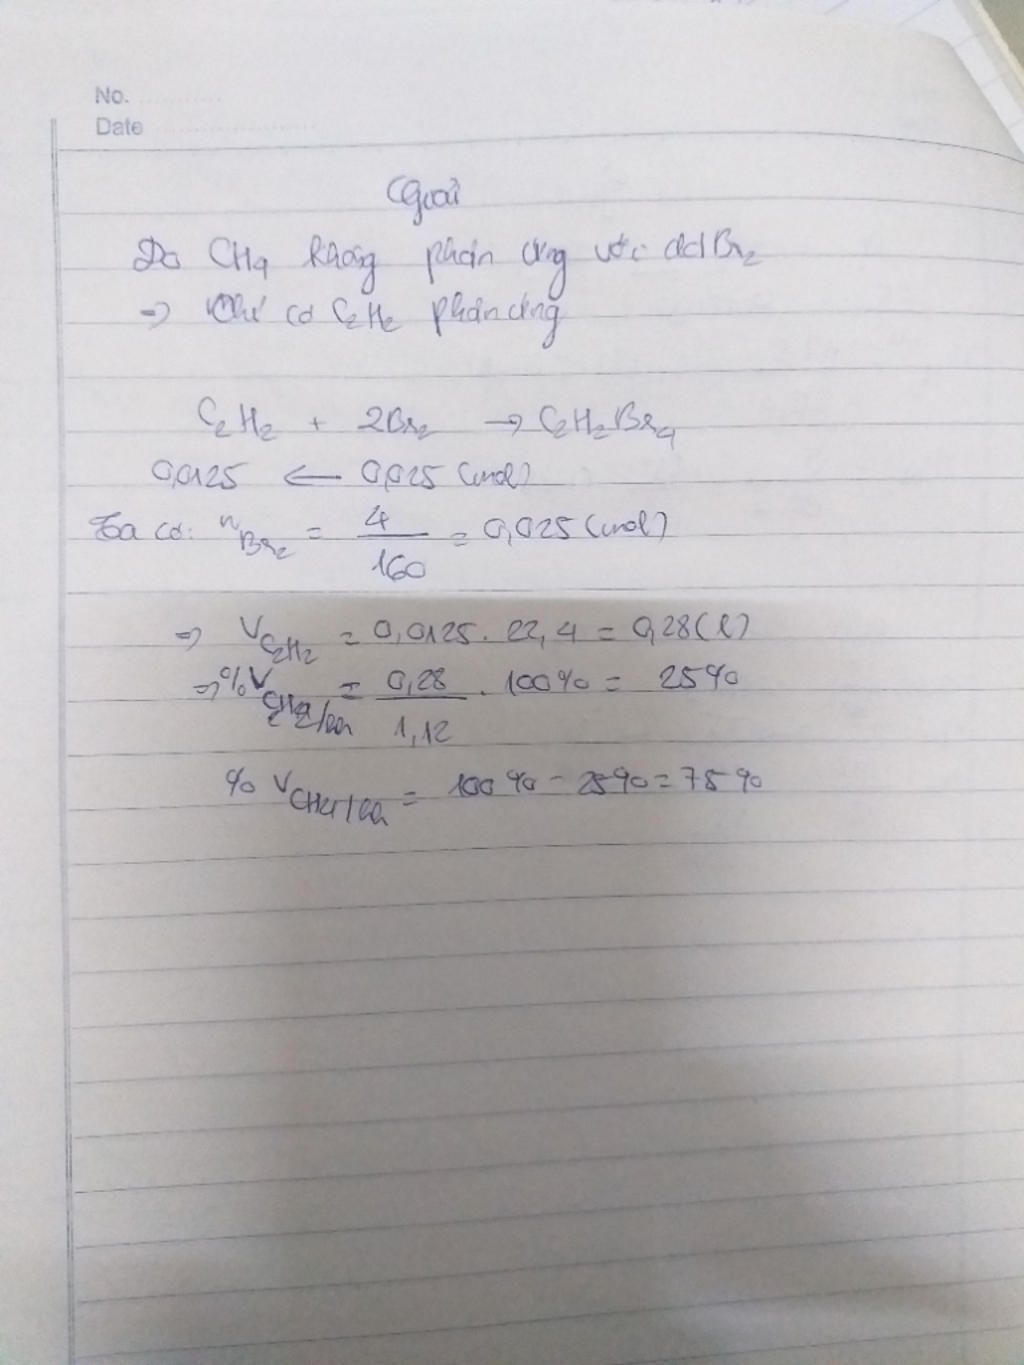 No.
Date
Giải
Do CH4 không phản ứng với dd Br2
=> Chỉ có C2H2 phản ứng
C2H2 + 2Br2 -> C2H2Br4
0,0125 <- 0,025 (mol)
Ta có: nBr2 = 4/160 = 0,025 (mol)
=> VC2H2 = 0,0125 . 22,4 = 0,28 (l)
=> %VC2H2/hh = 0,28/1,12 . 100% = 25%
% VCH4/hh = 100% - 25% = 75%